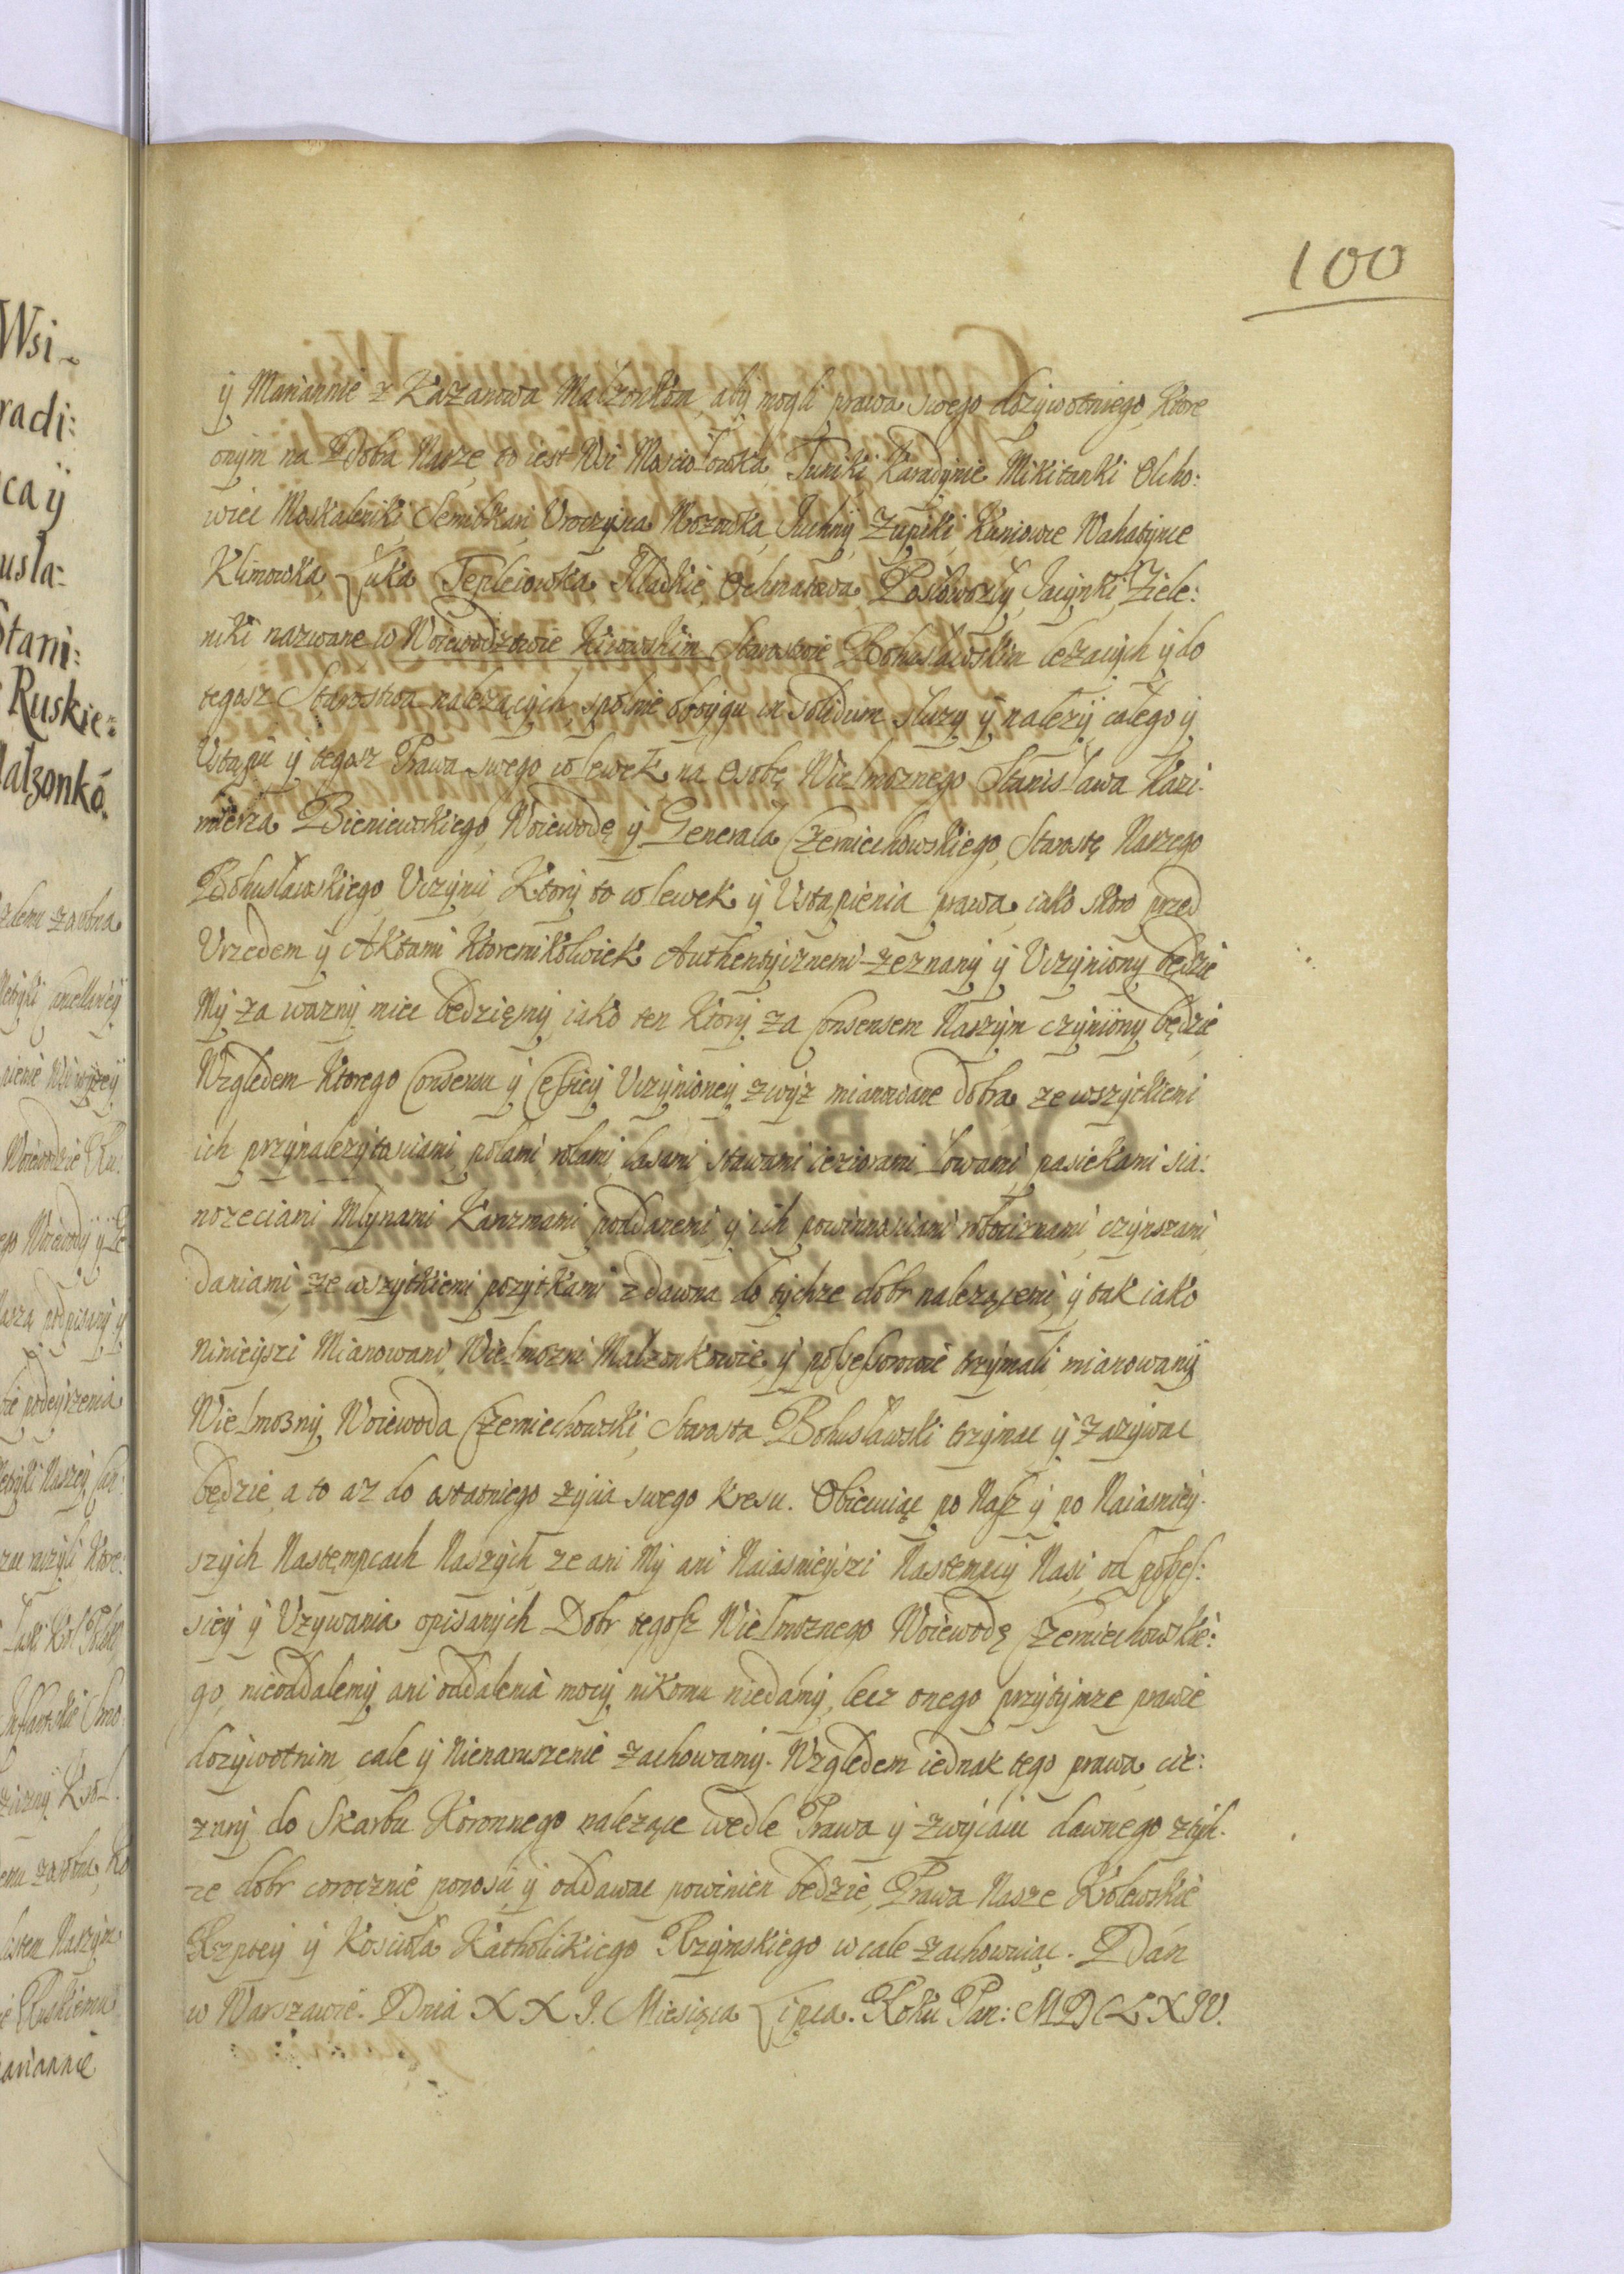 100
ÿ Mariannie z Kazanowa Małzonkom, abÿ mogli prawa swego dozÿwotniego, ktore
onÿm na Dobra Nasze, to iest Wsi Mosciłowka, Tuniki Karadÿnie Mikitanki Olcho:
wiec Moskalenki, Semibkari, Vroczÿna Mozowka, Juchnÿ, Zupiki, Kaniowie Wahatÿnce
Klimowka, Łuka Teplciowka Kladkie, Ochmatowa, Posłoworzÿ, Jacÿnki, Ziele:
niki nazwane w Woiewodztwie Kiiowskim Starostwie Bohusławskim lezacÿch ÿ do
tegosz Starostwa nalezącÿch, spolnie oboÿgu in solidum słuzy ÿ nalezÿ, całego ÿ
Ustąpic ÿ tegosz Prawa swego wlewek na Osobę Wielmoznego Stanisława Kazi:
mierza Bieniewskiego, Woiewodę ÿ Generała Czerniechowskiego, Starostę Naszego
Bohusławskiego, Uczÿnic, Ktorÿ to wlewek ÿ Ustąpienia prawa, iako skoro przed
Vrzedem ÿ Aktami Ktoremikolwiek Authentÿcznemi zeznanÿ ÿ Uczÿnionÿ będzie
Mÿ za waznÿ miec będziemÿ, iako ten Ktorÿ za Consensem Naszÿm czÿnionÿ będzie
Względem Ktorego Consensu ÿ Cessieÿ Uczÿnioneÿ zwÿz mianowane dobra, ze wszÿtkiemi
ich przÿnalezÿtosciami, polami rolami, lasami, stawami ieziorami łowami, pasiekami sia:
nozeciami Młÿnami Karzmami, poddanemi, ÿ ich powinnosciami robociznami, czÿnszami,
daniami, ze wszÿtkiemi pozÿtkami zdawna do tÿchze dobr nalezącemi, ÿ tak iako
ninieÿszi Mianowani, Wielmozni Małzonkowie, ÿ possessorowie trzÿmali, mianowanÿ
Wielmoznÿ Woiewoda Czerniechowski, Starosta Bohusławski trzÿmac ÿ zazÿwac
będzie, a to az do ostatniego zÿcia swego kresu. Obiecuiąc po Nass ÿ po Naiasnieÿ:
szÿch Nastempcach Naszÿch, ze ani Mÿ ani Naiasnieÿszi Nastempcÿ Nasi, od posses:
sieÿ ÿ Uzÿwania opisanÿch Dobr tegosz Wielmoznego Woiewodę Czerniechowskie:
go, nieoddalemÿ, ani oddalenia mocÿ nikomu niedamÿ, lecz onego przÿtÿmze prawie
dozÿwotnim, cale ÿ nienaruszenie zachowamÿ. Względem iednak tego prawa, cię:
zarÿ do Skarbu Koronnego nalezące wedle Prawa ÿ zwÿczaiu dawnego ztÿch:
ze dobr corocznie ponosic, ÿ oddawac powinien będzie, Prawa Nasze Krolewskie
Rzptÿ ÿ Kosciola Katholickiego Rzÿmskiego w cale zachowuiąc. Dan
w Warszawie. Dnia XXI. Miesiąca Lipca. Roku Pan: MDCLXIV.